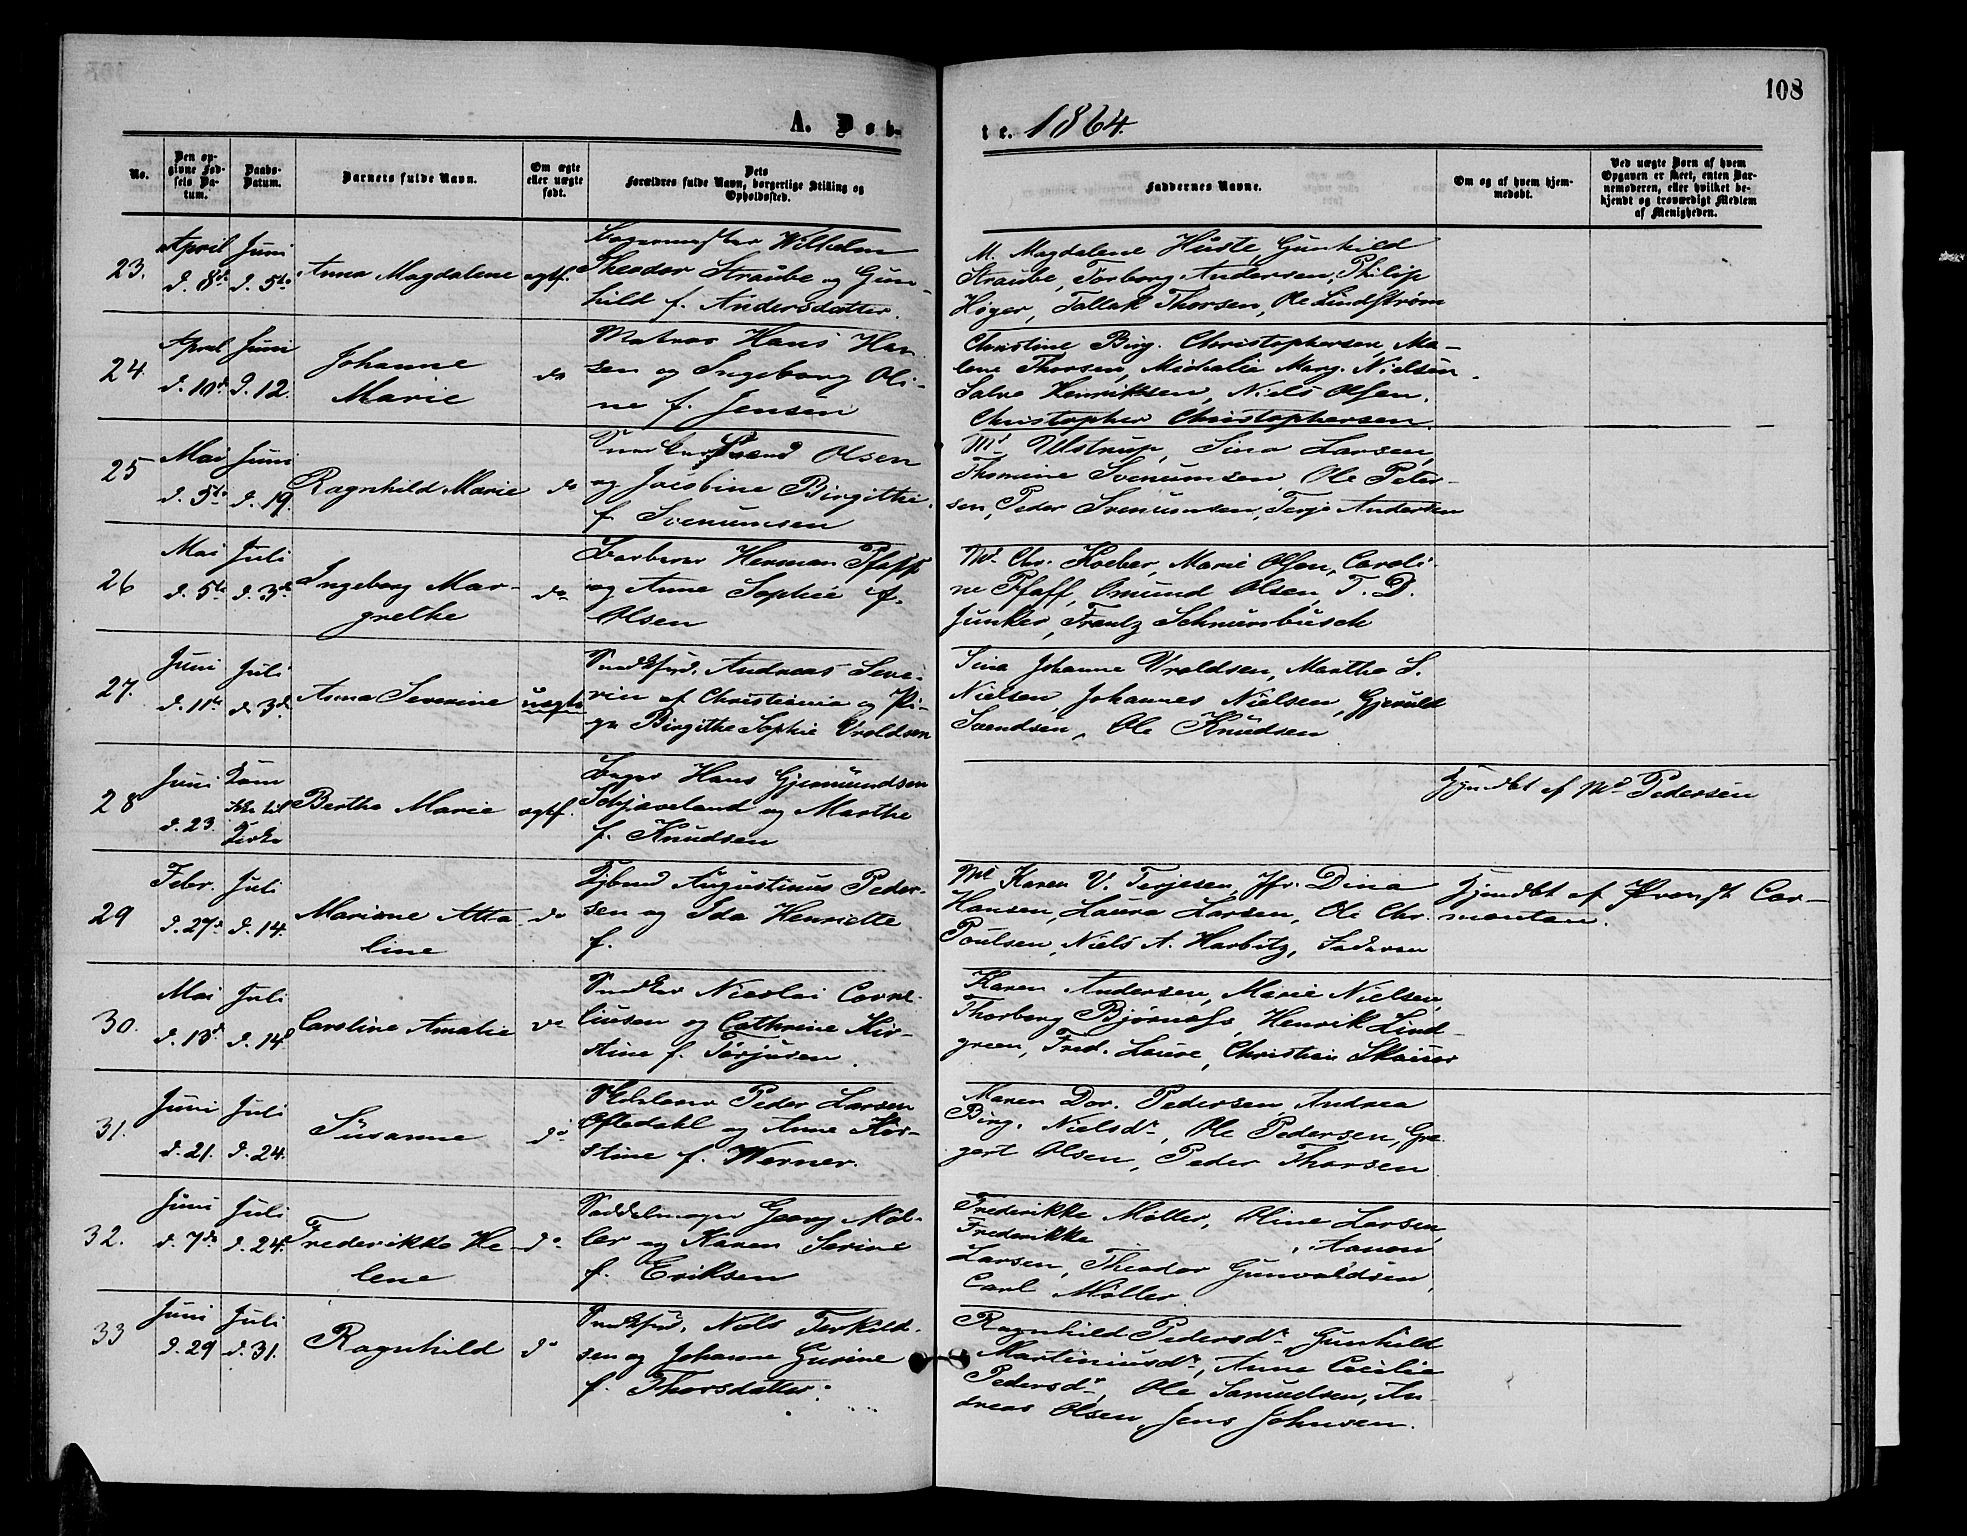 108
A. Døb-
te. 1864.
No.
Den op-
givne Fød-
sels Da-
tum.
Daabs-
Datum.
Barnets fulde Navn.
Om ægte
eller uægte
født.
Dets
Forældres fulde Navn, borgerlige Stilling og
Opholdssted.
Faddernes Navne.
Om og af hvem hjem-
medøbt.
Ved uægte Børn af hvem
Opgaven er skeet, enten Bar-
nemoderen, eller hvilket be-
kjendt og troværdigt Medlem
af Menigheden.
23.
April
d. 8de
Juni
d. 5te
Anna Magdalene
ægtf.
Bagermester Wilhelm
Theodor Straube og Gun-
hild f. Andersdatter.
M. Magdalene Huste, Gunhild
Straube, Torborg Andersen, Philip
Høger, Tallak Thorsen, Ole Lindstrøm
24.
April
d. 10de
Juni
d. 12.
Johanne
Marie
do
Matros Hans Han-
sen og Ingeborg Oli-
ne f. Jensen
Christine Birg. Christophersen, Ma-
lene Thorsen, Michalie Marg. Nielsen.
Salve Henriksen, Niels Olsen.
Christopher Christophersen.
25
Mai
d. 5te
Juni
d. 19.
Ragnhild Marie
do
Svend Olsen
og Jacobine Birgithe
f. Svenumsen
Md Ulstrup, Sina Larsen,
Thomine Svenumsen, Ole Peter-
sen, Peder Svenumsen, Terje Andersen
26
Mai
d. 5te
Juli
d. 3de
Ingeborg Mar-
grethe
do
Barberer Herman Pfaff
og Anne Sophie f.
Olsen
Md. Chr. Koeber, Marie Olsen, Caroli-
ne Pfaff, Omund Olsen, T. D.
Junker, Frantz Schnurrbusch
27.
Juni
d. 11te
Juli
d. 3de
Anna Severine
uægte
Snedksvd. Andreas Seve-
rin af Christiania og Pi-
ge Birgithe Sophie Vroldsen
Sina Johanne Vroldsen, Marthe S.
Nielsen, Johannes Nielsen, Gjeruld
Svendsen, Ole Knudsen
28
Juni
d. 23.
Kom
ikke til
Kirke
Berthe Marie
ægtf.
Bager Hans Gjermundsen
Schjaveland og Marthe
f. Knudsen
Hjemdbt af Md Pedersen
29
Febr.
d. 27de
Juli
d. 14.
Marinne Atta-
line
do
Augustinus Peder-
sen og Ida Henriette
f.
Md Karen V. Terjesen, Jfr. Dina
Hansen, Laura Larsen, Ole Chr.
Poulsen, Niels A. Harbitz, Faderen
Hjemdbt af Provst Cor-
montan.
30.
Mai
d. 13de
Juli
d. 14.
Caroline Amalie
do
Snedker Nicolai Corne-
liusen og Cathrine Kir-
stine f. Terjusen
Karen Andersen, Marie Nielsen,
Thorborg Bjørness, Henrik Lind-
green, Fred. Laure, Christian Skaiaer
31.
Juni
d. 21.
Juli
d. 24.
Susanne
do
Peder Larsen
Oftedahl og Anne Kir-
stine f. Werner.
Maren Dor. Pedersen, Andrea
Birg. Nielsdr., Ole Pedersen, Gre-
gert Olsen, Peder Thorsen
32.
Juni
d. 7de
Juli
d. 24.
Frederikke He-
lene
do
Saddelmager Georg Møl-
ler og Karen Serine
f. Eriksen
Frederikke Møller, Oline Larsen,
Frederikke , Aanon
Larsen, Theodor Gunvaldsen,
Carl Møller.
33
Juni
d. 29
Juli
d. 31.
Ragnhild
do
Snedksvd. Nels Terkild-
sen og Johanne Gurine
f. Thorsdatter.
Ragnhild Pedersdr., Gunhild
Martiniusdr., Anne Cecilie
Pedersdr, Ole Samuelsen, An-
dreas Olsen, Jens Johnsen.